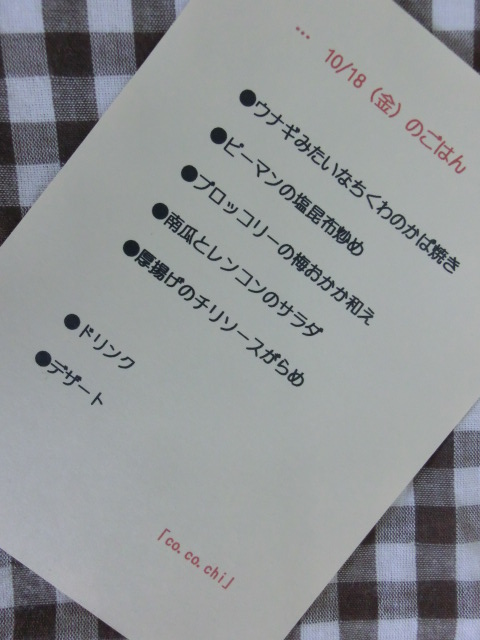 … 10/18（金）のごはん
●ウナギみたいなちくわのかば焼き
●ピーマンの塩昆布炒め
●ブロッコリーの梅おかか和え
●南瓜とレンコンのサラダ
●厚揚げのチリソースがらめ
●ドリンク
●デザート
「co.co.chi」